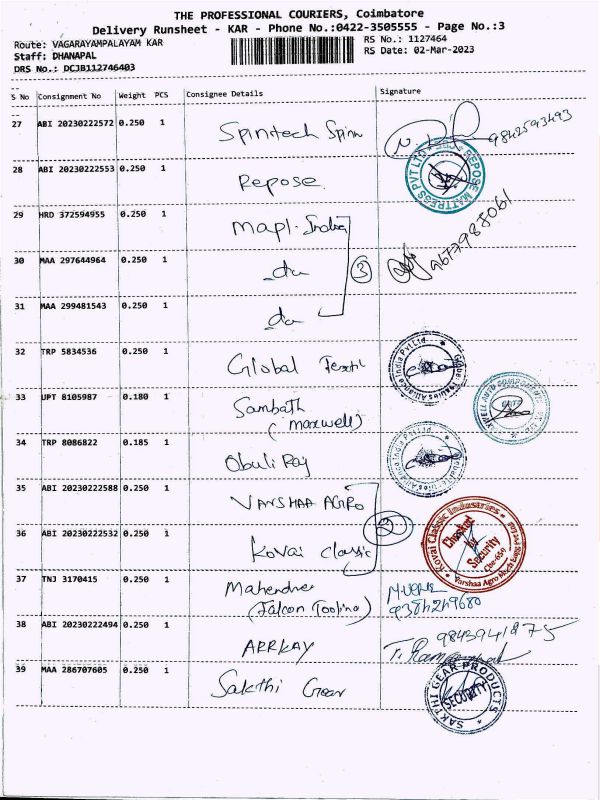 THE PROFESSIONAL COURIERS, Coimbatore
Delivery Runsheet - KAR - Phone No.:0422-3505555 - Page No.:3
Route: VAGARAYAMPALAYAM KAR
RS No.: 1127464
Staff: DHANAPAL
RS Date: 02-Mar-2023
DRS No.: DCJB112746403
S No Consignment No Weight PCS Consignee Details Signature
27 ABI 20230222572 0.250 1 Spintech Spinn 9842593493
28 ABI 20230222553 0.250 1 Repose
REPOSE MATTRESS PVT LTD
29 HRD 372594955 0.250 1 Mapl. India
30 MAA 297644964 0.250 1 do 3
31 MAA 299481543 0.250 1 do
32 TRP 5834536 0.250 1 Global Textil
33 UPT 8105987 0.180 1 Sambath
(maxwell)
34 TRP 8086822 0.185 1 Obuli Raj
35 ABI 20230222588 0.250 1 VARSHAA AGRO
36 ABI 20230222532 0.250 1 Kovai Classic 2
Kovai Classic Industries
Checked by Security
Cbe-659
Varshaa Agro
37 TNJ 3170415 0.250 1 Mahendra
(Falcon Tooling)
38 ABI 20230222494 0.250 1 ARRKAY
39 MAA 286707605 0.250 1 Sakthi Gear
SAKTHI GEAR PRODUCTS
SECURITY